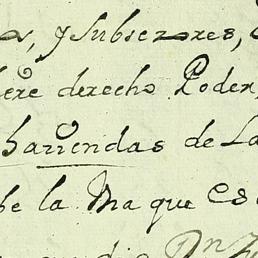 , y Subsezores,
ere derecho Poder,
harriendas de La
be la Ma que es
Dn